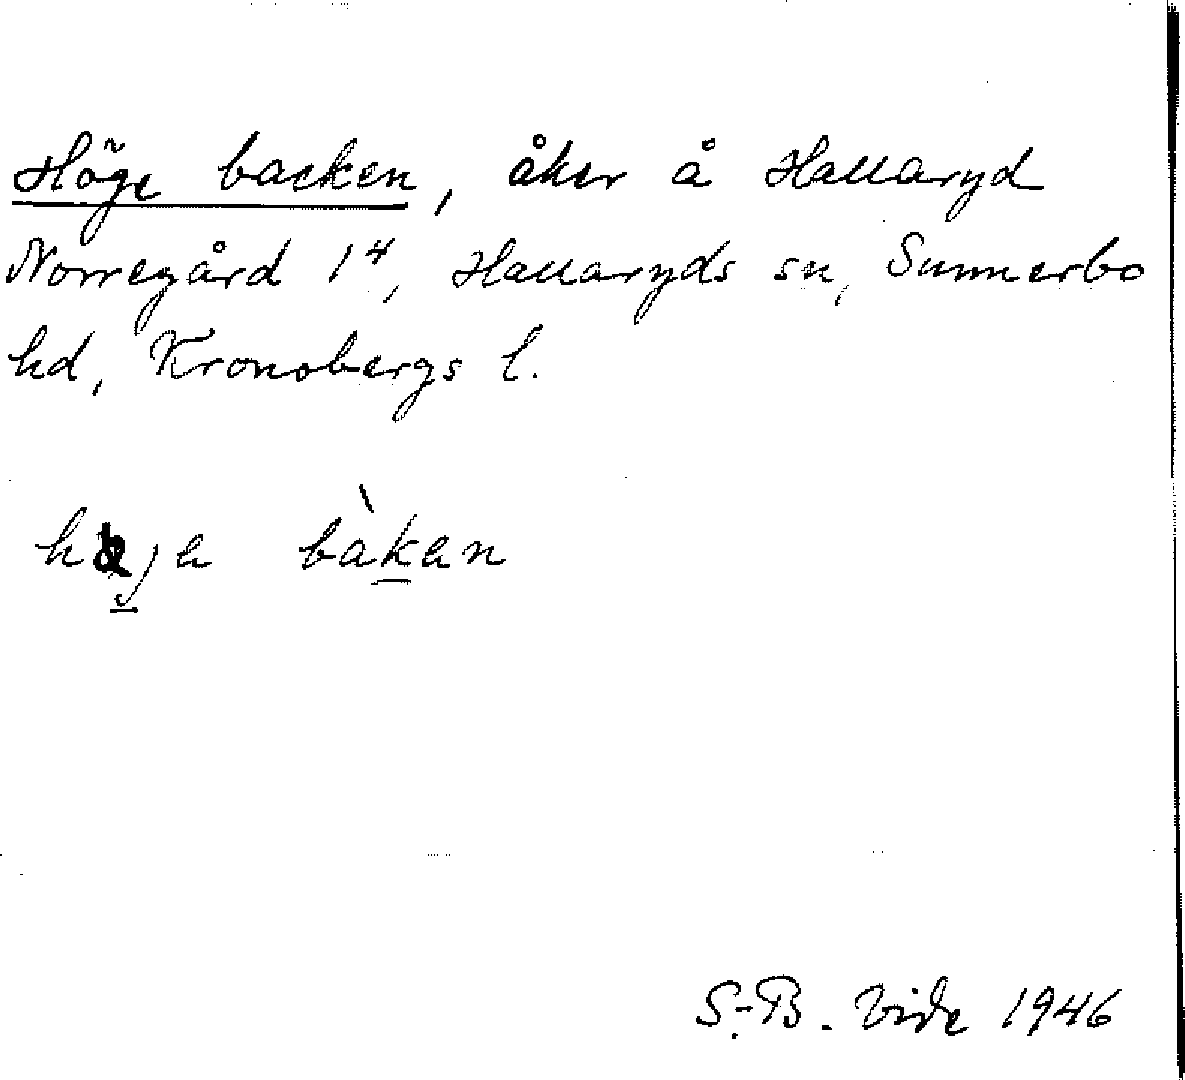 Höge backen, åker å Hallaryd
Norregård 1⁴, Hallaryds sn, Sunnerbo
hd, Kronobergs l.
bàken
S.-B. Vide 1946